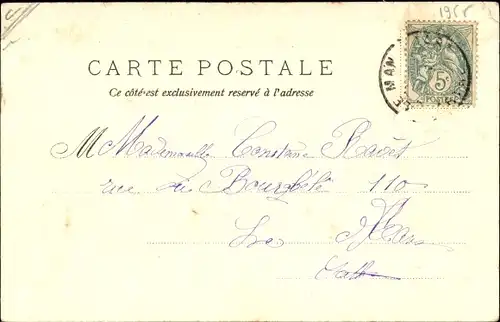 CARTE POSTALE
Ce côté est exclusivement reservé à l'adresse
5c
POSTES
LE MAN
Mademoiselle Constance
rue du Bourgbelé 110
Le Mans